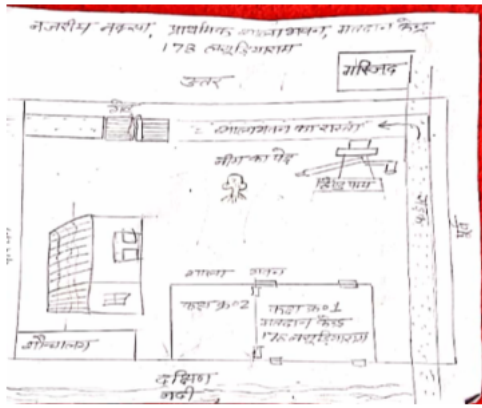 नजरीय नक्शा, प्राथमिक शाला भवन, मतदान केन्द्र
178 लसूडियाराम
उत्तर
मस्जिद
गेट
शालाभवन का रास्ता
नीम का पेड़
हैण्डपम्प
पूर्व
शाला भवन
कक्ष क्र० 2
कक्ष क्र० 1
मतदान केन्द्र
178 लसूडियाराम
शौचालय
दक्षिण
नदी